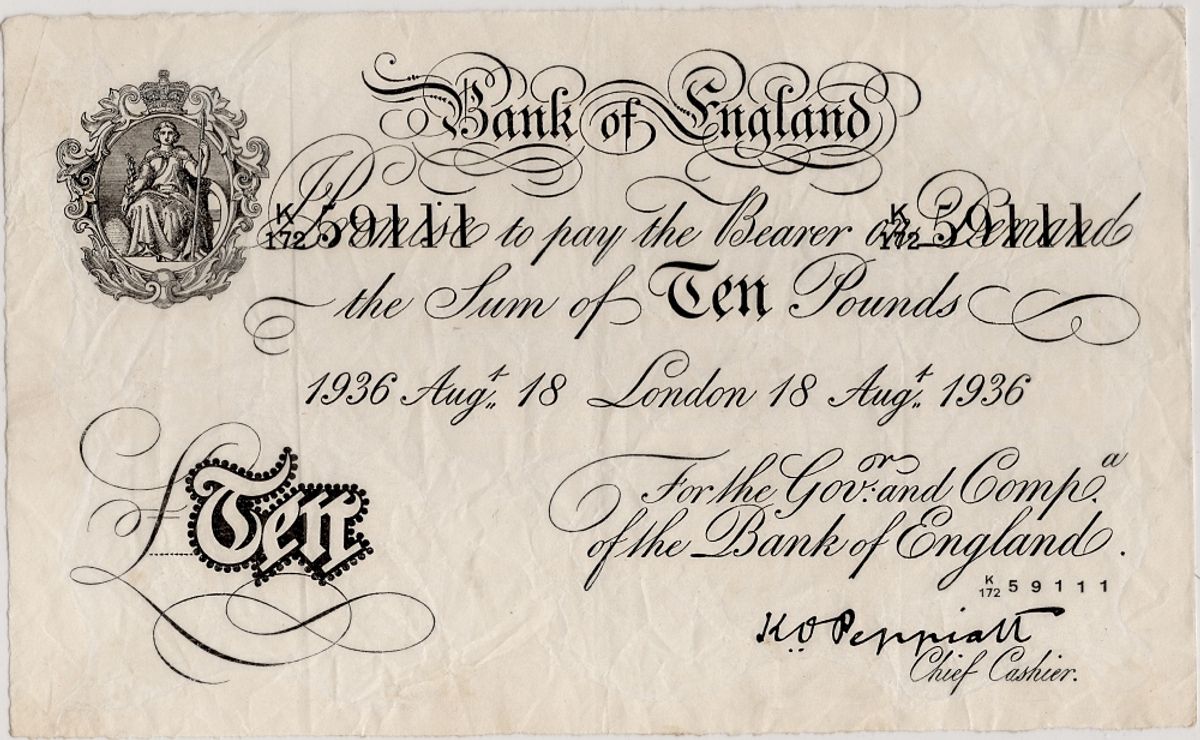 Bank of England
K 172 59111 K 172 59111
I Promise to pay the Bearer on Demand
the Sum of Ten Pounds
1936 Augt. 18 London 18 Augt. 1936
For the Govr. and Compa.
of the Bank of England.
£Ten
K 172 59111
K O Peppiatt
Chief Cashier.